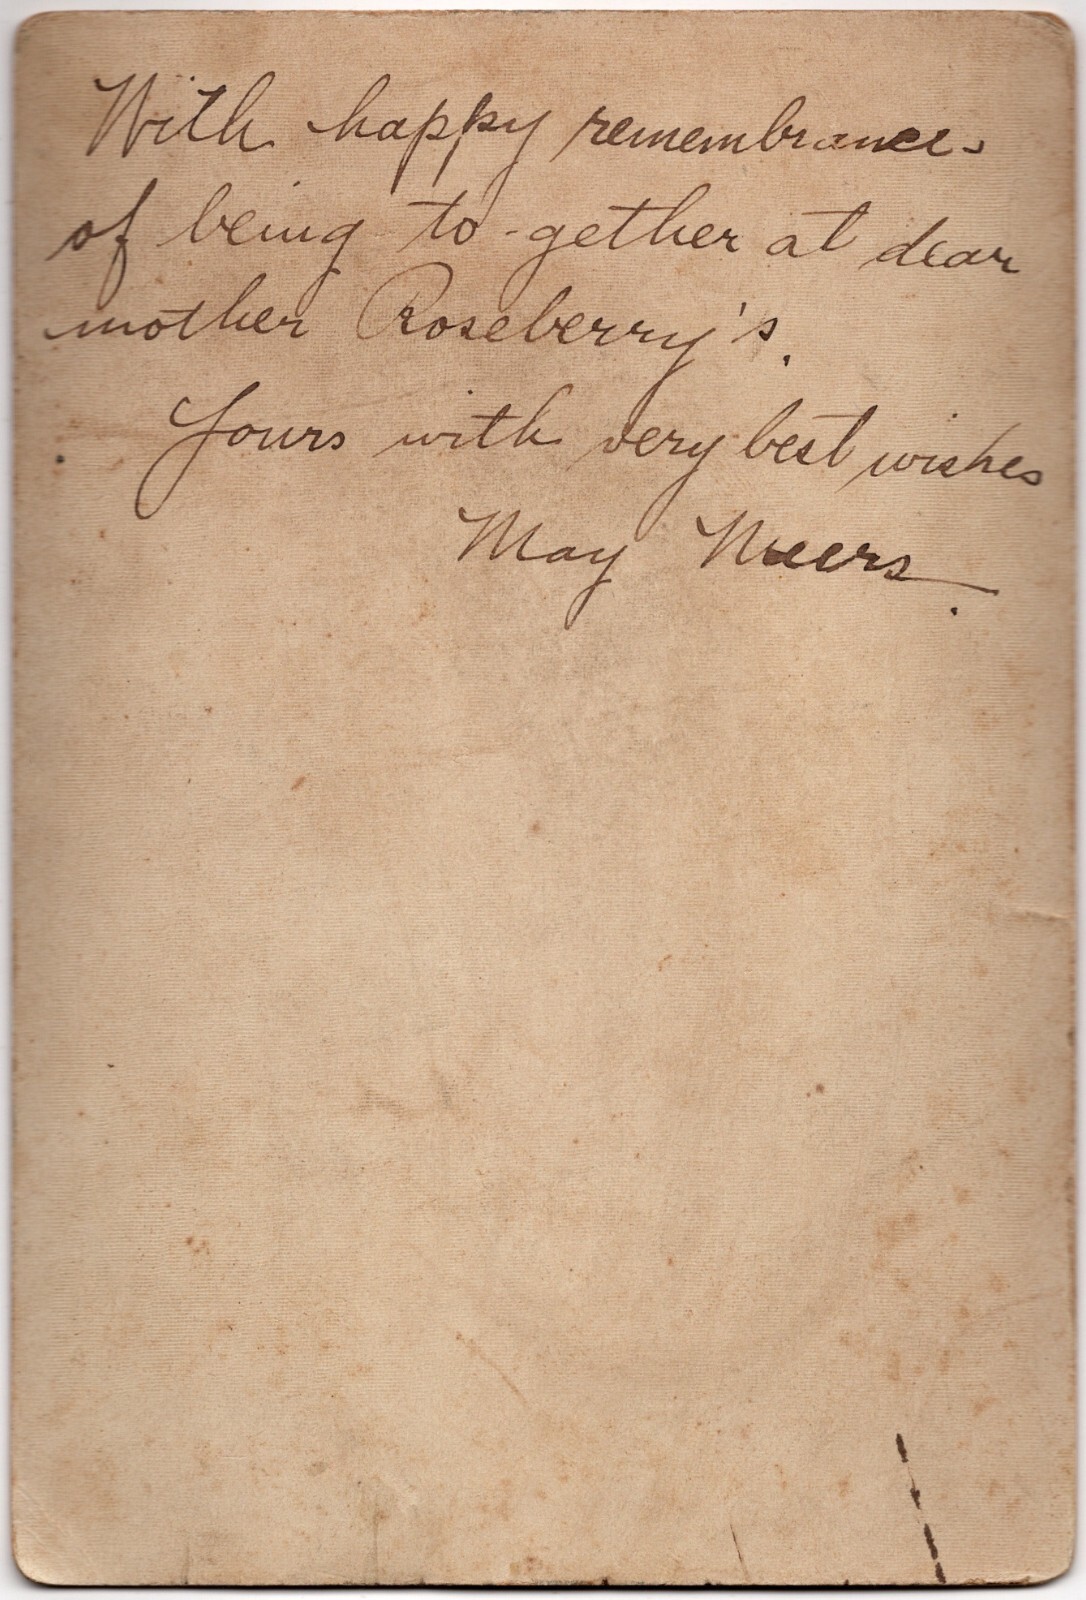 With happy remembrances
of being to-gether at dear
mother Roseberry's.
Yours with very best wishes
May Meers.